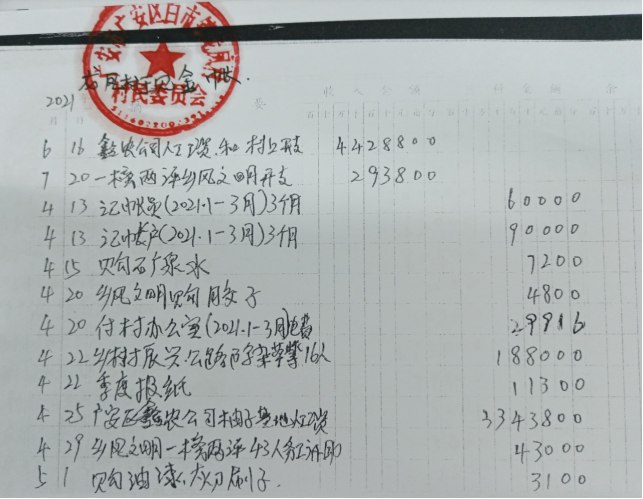 广安区白市镇
村民委员会
龙 村现金 账.
2021
月 日 摘 要 收入金额 付出金额 余
6 16 鑫农公司人工资.和村上开支 4428800
7 20 一榜两评乡风文明开支 293800
4 13 记账员(2021.1-3月)3个月 60000
4 13 记账户(2021.1-3月)3个月 90000
4 15 购矿泉水 7200
4 20 乡风文明购 子 4800
4 20 付村办公室(2021.1-3月)电费 29916
4 22 乡村振兴.公路 杂草 16人 188000
4 22 季度报纸 11300
4 25 广安区鑫农公司柚子基地人工资 3343800
4 29 乡风文明一榜两评43人务工补助 43000
5 1 购油漆、 刷子. 3100